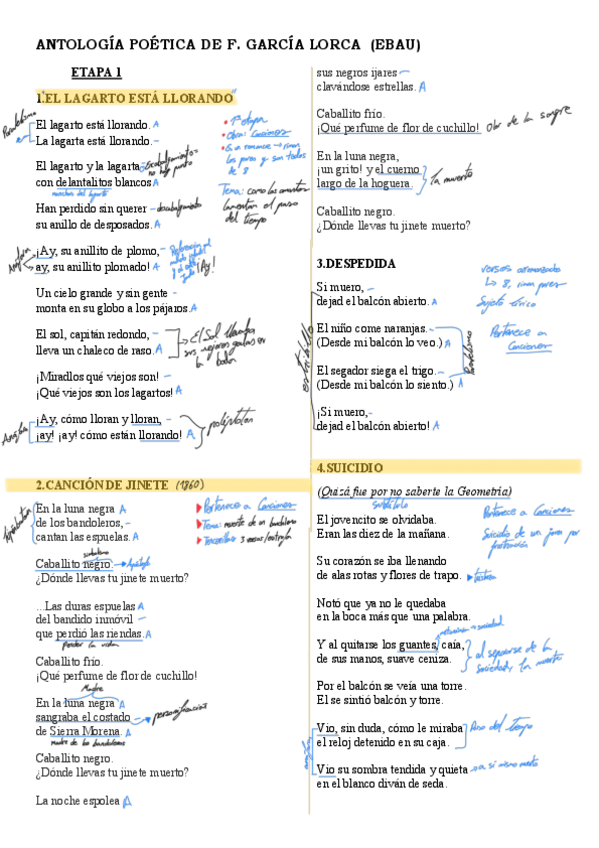 ANTOLOGÍA POÉTICA DE F. GARCÍA LORCA (EBAU)
ETAPA 1
1."EL LAGARTO ESTÁ LLORANDO"
Paralelismo
El lagarto está llorando. A
La lagarta está llorando. -
• 1ª etapa
• Obra: Canciones
El lagarto y la lagarta - Encabalgamiento
con delantalitos blancos A
Han perdido sin querer - encabalgamiento
su anillo de desposados. A
Tema: como los amantes
lamentan el paso
del tiempo
¡Ay, su anillito de plomo, -
ay, su anillito plomado! A
¡Ay!
Un cielo grande y sin gente -
monta en su globo a los pájaros A
El sol, capitán redondo, -
lleva un chaleco de raso. A
El Sol
¡Miradlos qué viejos son! -
¡Qué viejos son los lagartos! A
¡Ay, cómo lloran y lloran, -
¡ay! ¡ay! cómo están llorando! A
Anáfora
políptoton
2.CANCIÓN DE JINETE (1860)
En la luna negra A
de los bandoleros, -
cantan las espuelas. A
Pertenece a Canciones
Tema: muerte de un bandolero
símbolo
Caballito negro. → Apóstrofe
¿Dónde llevas tu jinete muerto?
...Las duras espuelas A
del bandido inmóvil -
que perdió las riendas. A
Perder la vida
Caballito frío.
¡Qué perfume de flor de cuchillo!
Madre
En la luna negra A
sangraba el costado -
de Sierra Morena. A
personificación
madre de los bandoleros
Caballito negro.
¿Dónde llevas tu jinete muerto?
La noche espolea A
sus negros ijares -
clavándose estrellas. A
Caballito frío.
¡Qué perfume de flor de cuchillo! Olor de la sangre
En la luna negra,
¡un grito! y el cuerno
largo de la hoguera.
la muerte
Caballito negro.
¿Dónde llevas tu jinete muerto?
3.DESPEDIDA
Si muero, -
dejad el balcón abierto. A
Sujeto lírico
El niño come naranjas. -
(Desde mi balcón lo veo.) A
Pertenece a
Canciones
El segador siega el trigo. -
(Desde mi balcón lo siento.) A
Paralelismo
estribillo
¡Si muero, -
dejad el balcón abierto! A
4.SUICIDIO
(Quizá fue por no saberte la Geometría)
subtítulo
Pertenece a Canciones
El jovencito se olvidaba.
Eran las diez de la mañana.
Suicidio de un joven por
Su corazón se iba llenando
de alas rotas y flores de trapo.
Notó que ya no le quedaba
en la boca más que una palabra.
Y al quitarse los guantes, caía,
de sus manos, suave ceniza.
al separarse de la
sociedad, la muerte
Por el balcón se veía una torre.
El se sintió balcón y torre.
Vio, sin duda, cómo le miraba
el reloj detenido en su caja.
Paso del tiempo
Vio su sombra tendida y quieta → a si mismo muerto
en el blanco diván de seda.